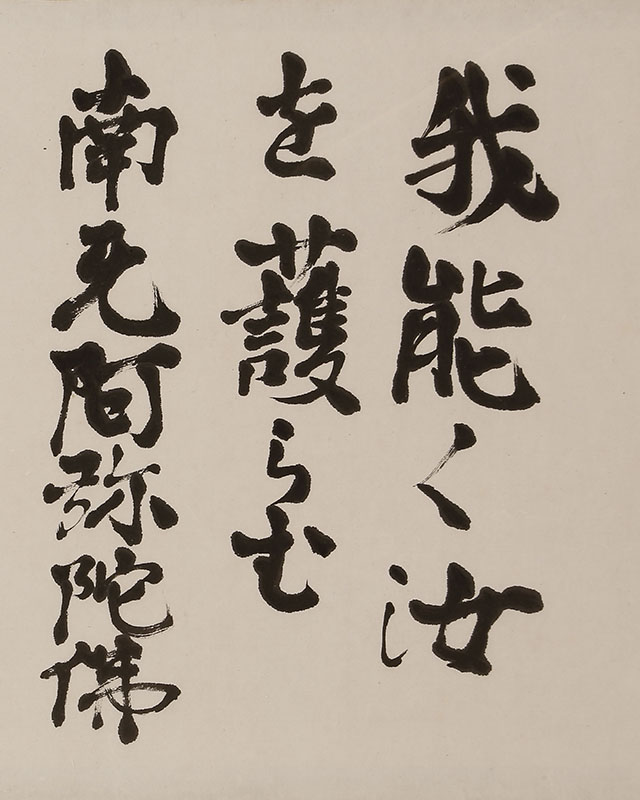 我能く汝
を護らむ
南无阿弥陀佛